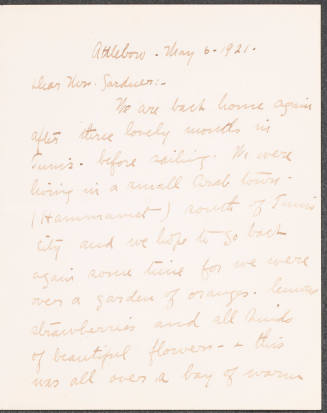 Attleboro - May 6 - 1921.
Dear Mrs. Gardner:-
We are back home again
after three lovely months in
Tunis - before sailing. We were
living in a small Arab town -
(Hammamet) south of Tunis
city and we hope to go back
again some time for we were
over a garden of oranges - lemons
strawberries and all kinds
of beautiful flowers - & this
was all over a bay of warm